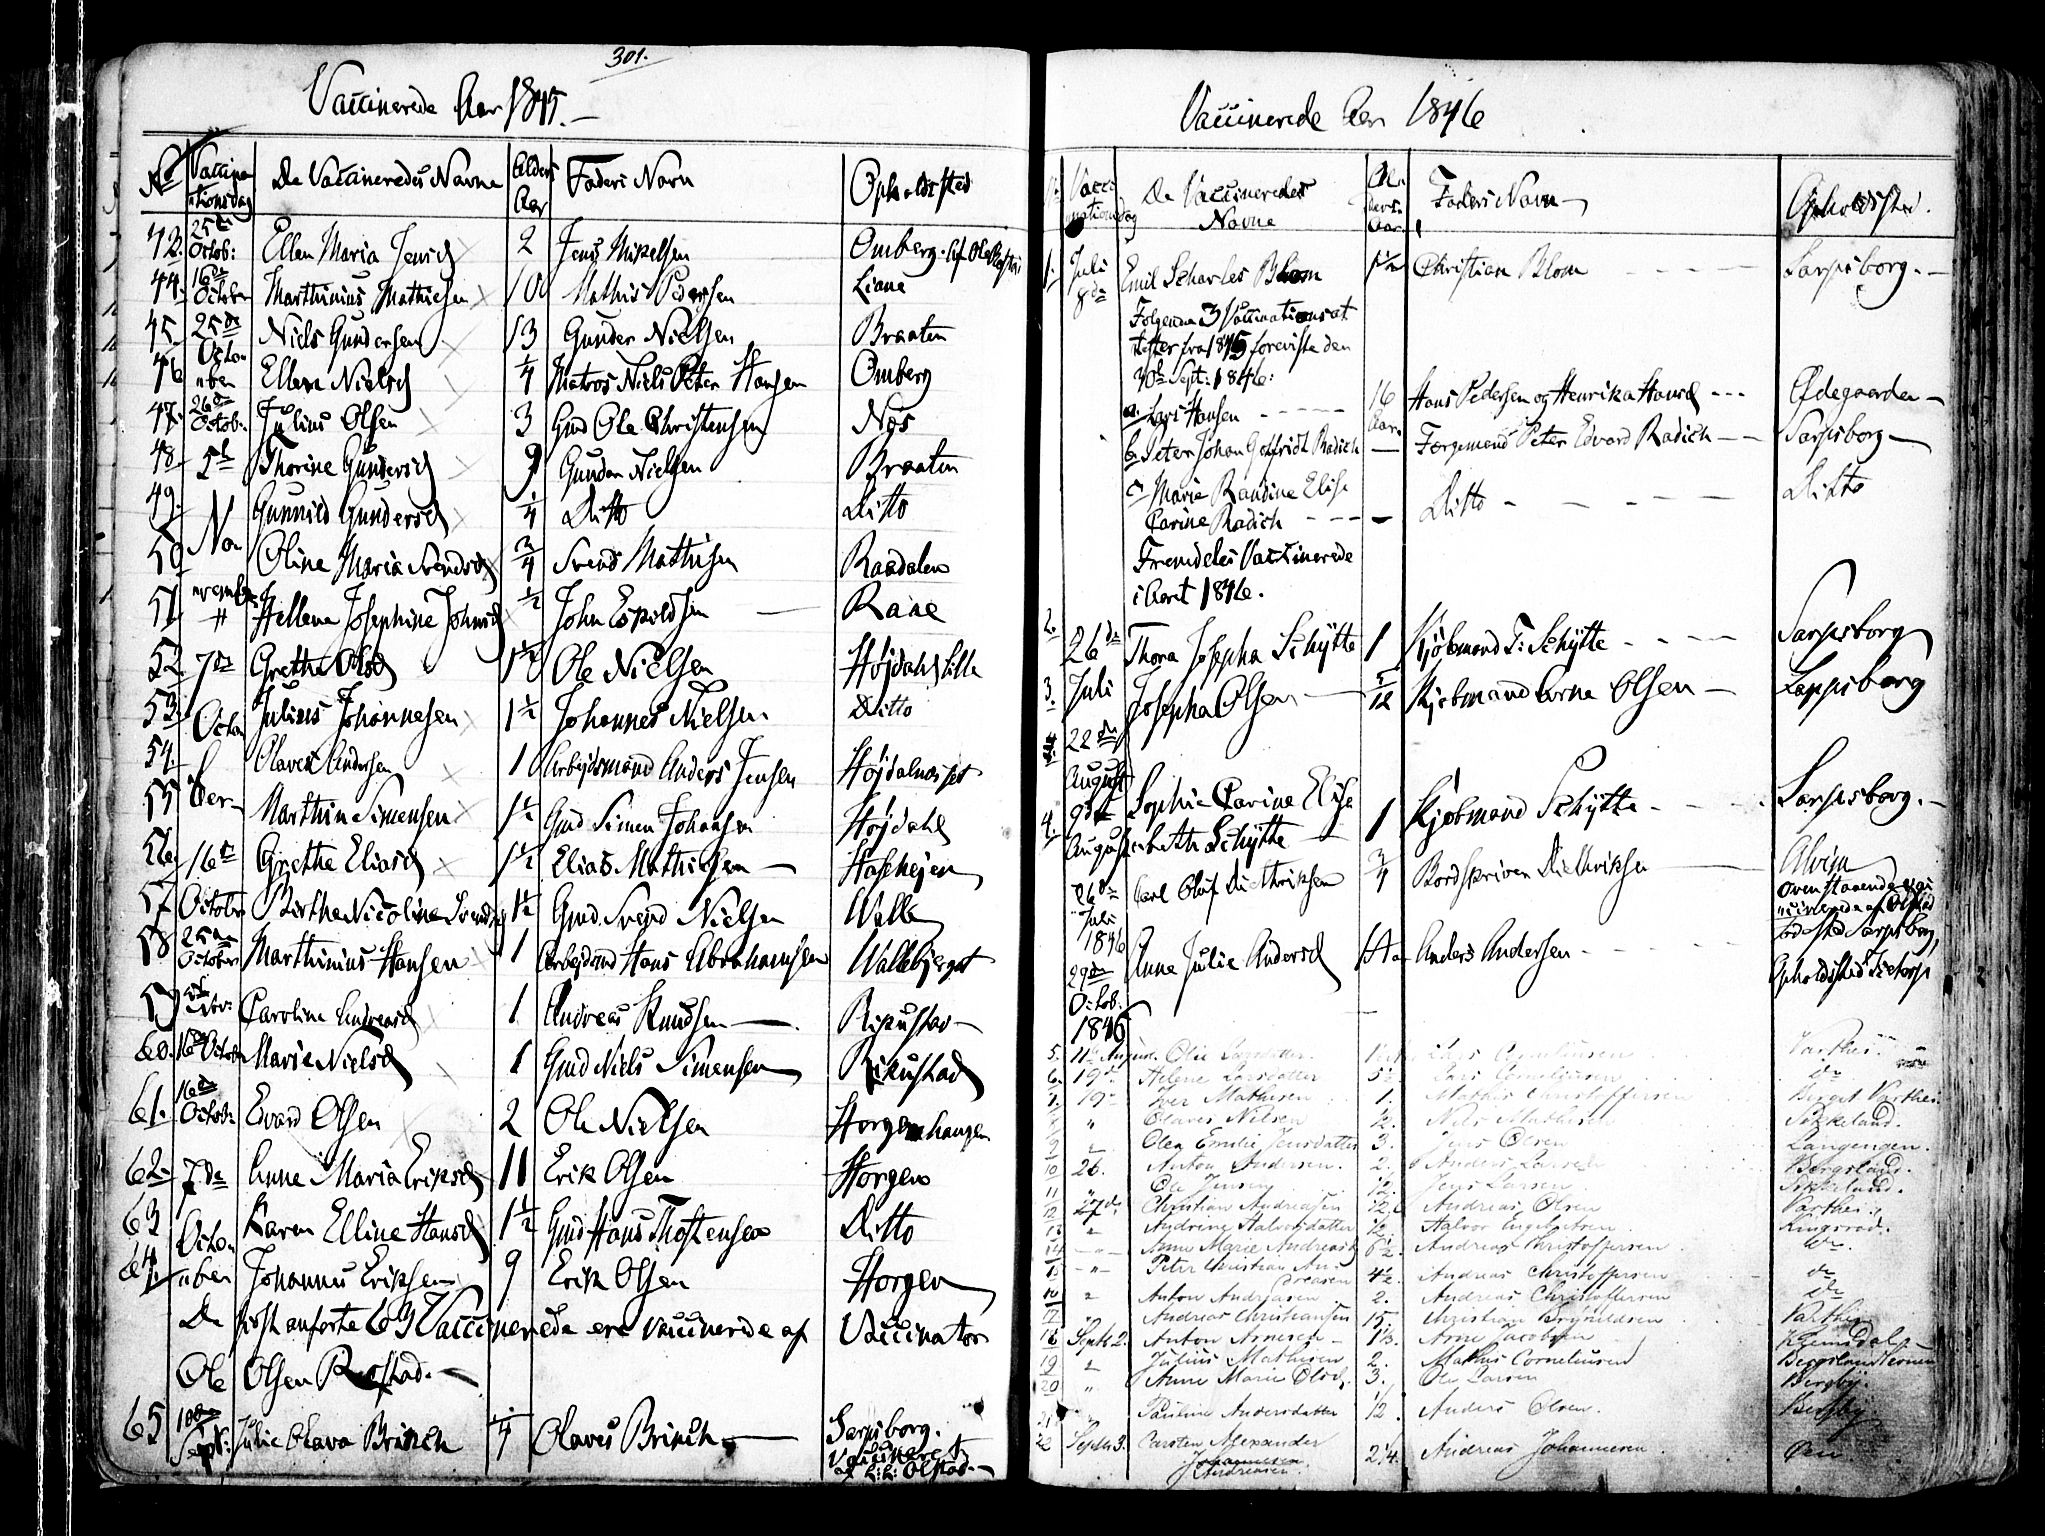 301.
Vaccinerede Aar 1845.
No Vaccina- De Vaccineredes Navne Alder Faders Navn Opholdsted
tionsdag Aar
42. 25de Octob: Ellen Maria Jensd 2 Jens Mikelsen Omberg. af Ole
44. 16de October Marthinius Mathiesen 10 Mathis Pedersen Liane
45. 25de Niels Gundersen 13 Gunder Nielsen Braaten
46 Octo- Ellen Nielsd 1/4 Matros Niels Peter Hansen Omberg
ober
47. 26de Octob: Julius Olsen 3 Gmd Ole Christensen Nes
48 5te Thorine Gundersd 9 Gunder Nielsen Braaten
49. Gunnild Gundersd 1/4 Ditto Ditto
50 No- Oline Maria Svendsd 3/4 Svend Mathisen Raadalen
51 vember Hellene Josephine Johnsd 1/2 John Espildsen Rane
52 7de Grethe Olsd 1 1/2 Ole Nielsen Højdahl Lille
53. Octo- Julius Johannesen 1 1/2 Johannes Nielsen Ditto
54. Olaves Andersen 1 Arbejdsmand Anders Jensen
55 ber Marthin Simensen 1 1/2 Gmd Simen Johansen Højdahl
56 16de Grethe Eliasd 1 1/2 Elias Mathiesen
57 October Birthe Nicoline Svendsd 1 1/2 Gmd. Svend Nielsen Walle
58 25de October Marthinius Hansen 1 Arbejdsmd Hans Abrahamsen Wallebjerget
59 Caroline Andreasd 1 Andreas Knudsen
60. 16de October Marie Nielsd 1 Gmd Niels Simensen
61. 16de Octob: Edvard Olsen 2 Ole Nielsen Horgenhaugen
62. 7de Anne Maria Eriksd 11 Erik Olsen Horgen
63 Octo- Karen Elline Hansd 1 1/2 Gmd Hans Thostensen Ditto
64 ober Johannes Eriksen 9 Erik Olsen Horgen
De først anførte 63 Vaccinerede ere vaccinerede af Vaccinator
Ole Olsen
65 10de Sept: Julie Olava Brinch 1/4 Olaves Brinch Sarpsborg.
Vaccineret
af
Vaccinerede Aar 1846
Vacci- De Vaccineredes Al- Faders Navn Opholdsted.
nationsdag Navne ders Aar
1. Juli 8de Emil Scharles Blom 1 1/2 Christian Blom Sarpsborg.
Følgende 3 Vaccinationsat
tester fra 1845 foreviste den
30te Sept: 1846:
a. Lars Hansen 16 Aar Hans Pedersen og Henrika Hansd Ødegaarden
b. Peter Johan Gotfridt Radich Færgemand Peter Edvard Radich Sarpsborg
c. Marie Randine Elise
Carine Radich Ditto Ditto
Fremdeles Vaccinerede
i Aaret 1846.
2. 26de Thora Josepha Schytte 1 Kjøbmand T: Schytte Sarpsborg
3. Juli Josepha Olsen 5/12 Kjøbmand Arne Olsen Sarpsborg
4. 22de
August
9de Sophie Carine Elisa-
4. August beth Schytte 1 Kjøbmand Schytte Sarpsborg.
26de Juli 1846 Carl Oluf Diethriksen 3/4 Bordskriver Diethriksen Alvim
Ovenstaaende
29de Octob: 1846 Anne Julie Andersd Anders Andersen
5. 11te August. Lars Corneliusen Varthei.
6. 19de Helene Larsdatter 5 1/2 Lars Corneliusen do
7. 19de Iver Mathisen 1. Mathis Christoffersen Berget Varthei.
8 " Olaves Nilsen 1/2. Nils Mathisen Sikkeland.
9 " Olea Emilie Jensdatter 3. Jens Olsen Langengen.
10 26. Anton Andersen. 2. Anders Larsen Bergsland.
11 " Ole Jensen 1/2. Jens Larsen Sikkeland.
12 27de Christian Andreasen 1/2. Andreas Olsen Varthei.
13 " Andrine Halvorsdatter 1/2 Halvor Engebretsen Kingsrød.
14 " Anne Marie Andreasd 6 1/2. Andreas Christoffersen do
15 " Peter Christian An-
dreasen 4 1/2. Andreas Christoffersen do
16 " Anton Andreasen 2. Andreas Christoffersen do
17 " Andreas Christiansen 15. Christian Brynildsen Varthei
18 Septb 2. Anton Arnesen Arne Jacobsen
19 " Julius Mathisen 2. Mathis Corneliusen
20 " Anne Marie Olsd. 3. Ole Larsen Bergby.
21 " Pauline Andersdatter 1/2 Anders Olsen. Bergby
22 Septb 3. Carsten Alexander
Johannesen
Andreasen. 2 1/4. Andreas Johannesen